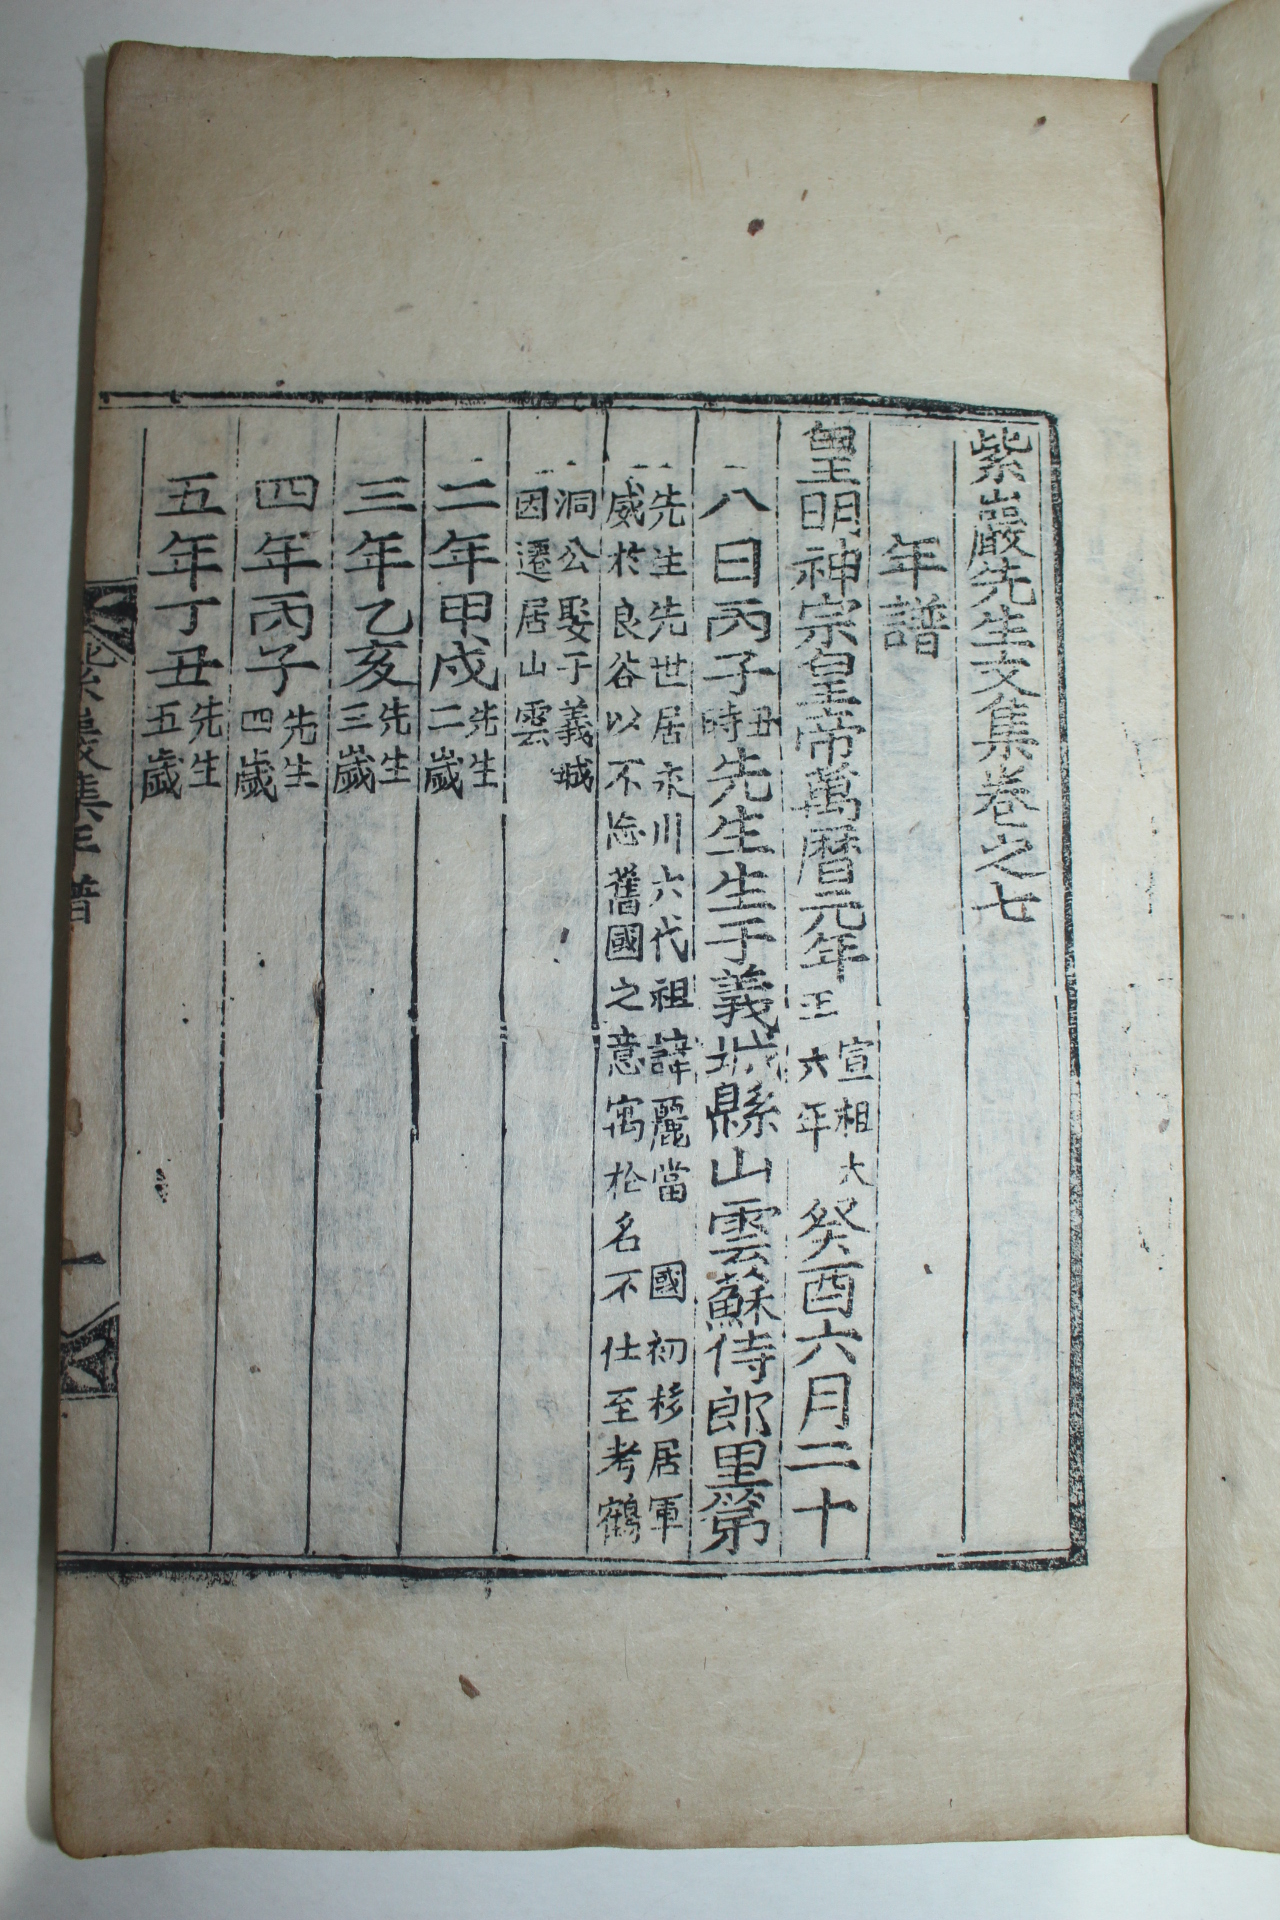 紫巖先生文集卷之七
年譜
皇明神宗皇帝萬曆元年宣祖大王六年癸酉六月二十
八日丙子丑時先生生于義城縣山雲蘇侍郎里第
先生先世居永川六代祖諱麗當國初移居軍
威於良谷以不忘舊國之意寓於名不仕至考鶴
洞公娶于義城
因遷居山雲
二年甲戌先生二歲
三年乙亥先生三歲
四年丙子先生四歲
五年丁丑先生五歲
紫巖集年譜 一